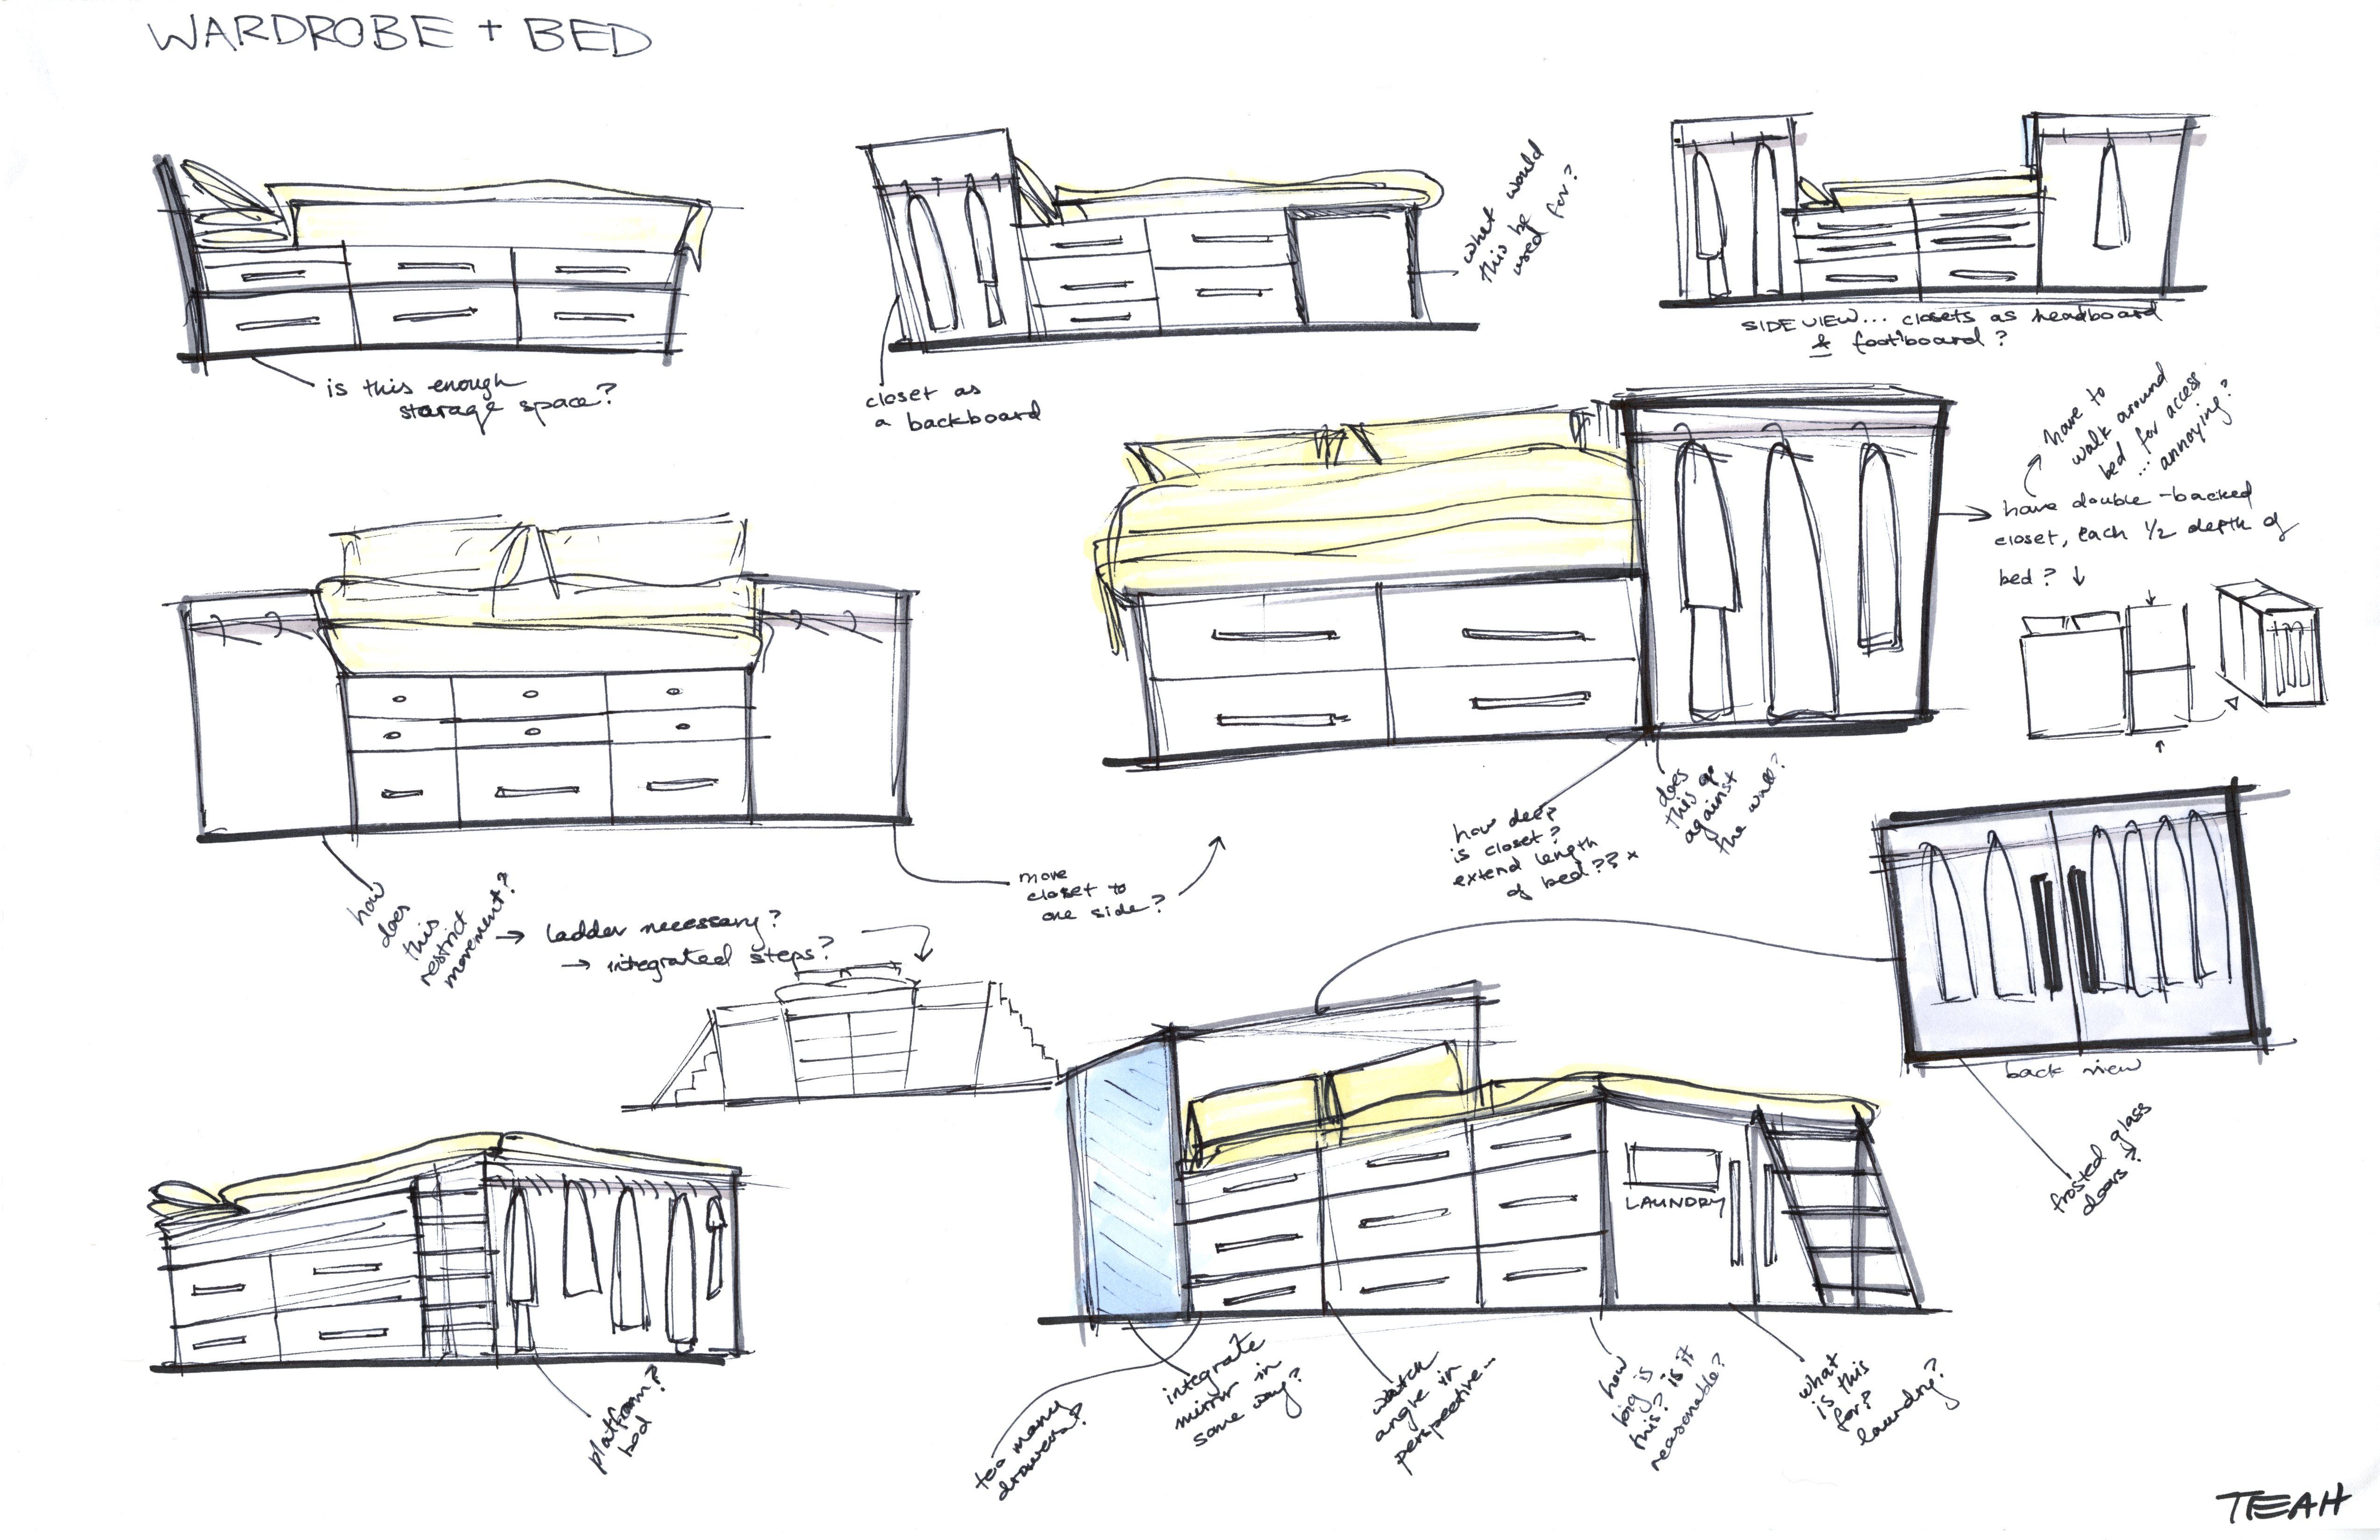 WARDROBE + BED
is this enough
storage space?
closet as
a backboard
what would
this be
used for?
SIDE VIEW... closets as headboard
& footboard?
have to
walk around
bed for access
... annoying?
have double-backed
closet, each 1/2 depth of
bed? ↓
how
does
this
restrict
movement?
→ ladder necessary?
→ integrated steps?
move
closet to
one side?
how deep
is closet?
extend length
of bed??
does
this go
against
the wall?
back view
frosted glass
doors?
platform?
bed
LAUNDRY
too many
drawers?
integrate
mirror in
some way?
watch
angle in
perspective...
how
big is
this? is it
reasonable?
what
is this
for?
laundry?
TEAH